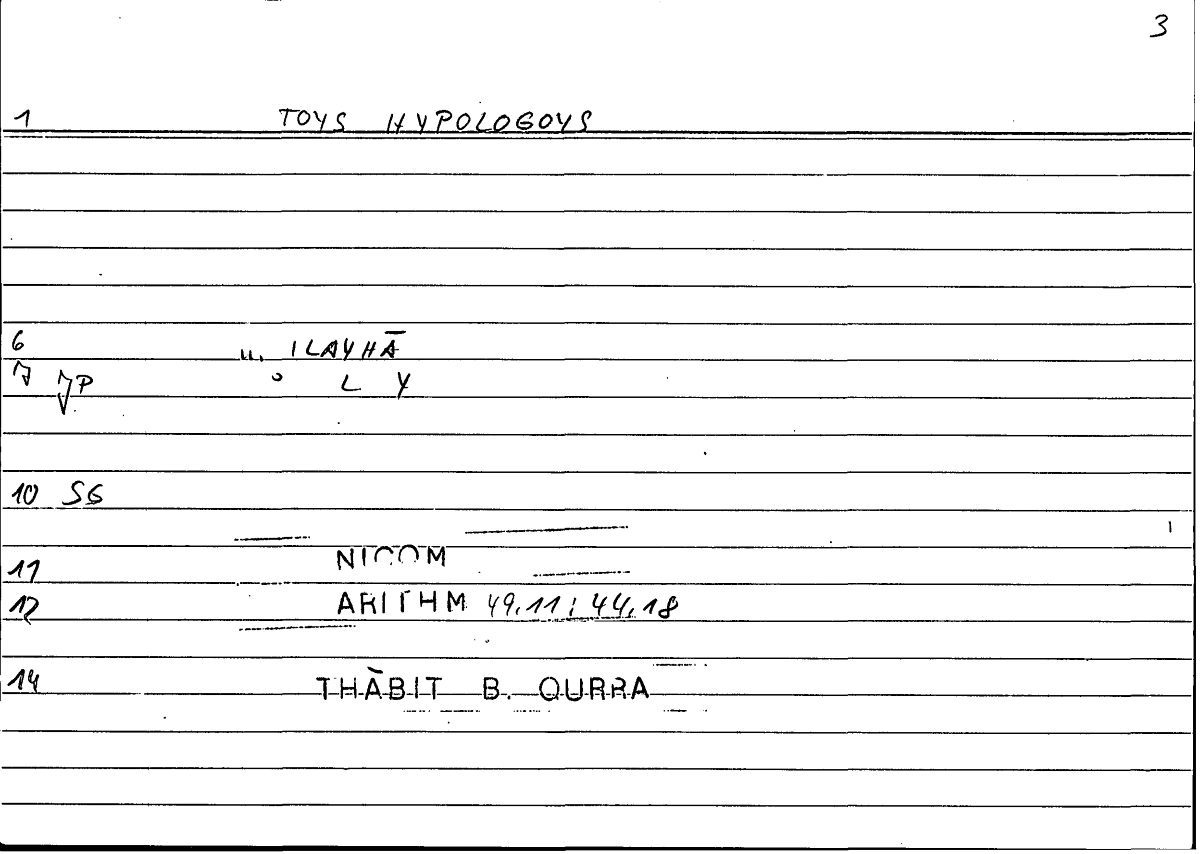 3
1 TOYS HYPOLOGOYS
6 ILAYHĀ
L Y
10 SG
11 NICOM
12 ARITHM 49.11; 44.18
14 THĀBIT B. QURRA